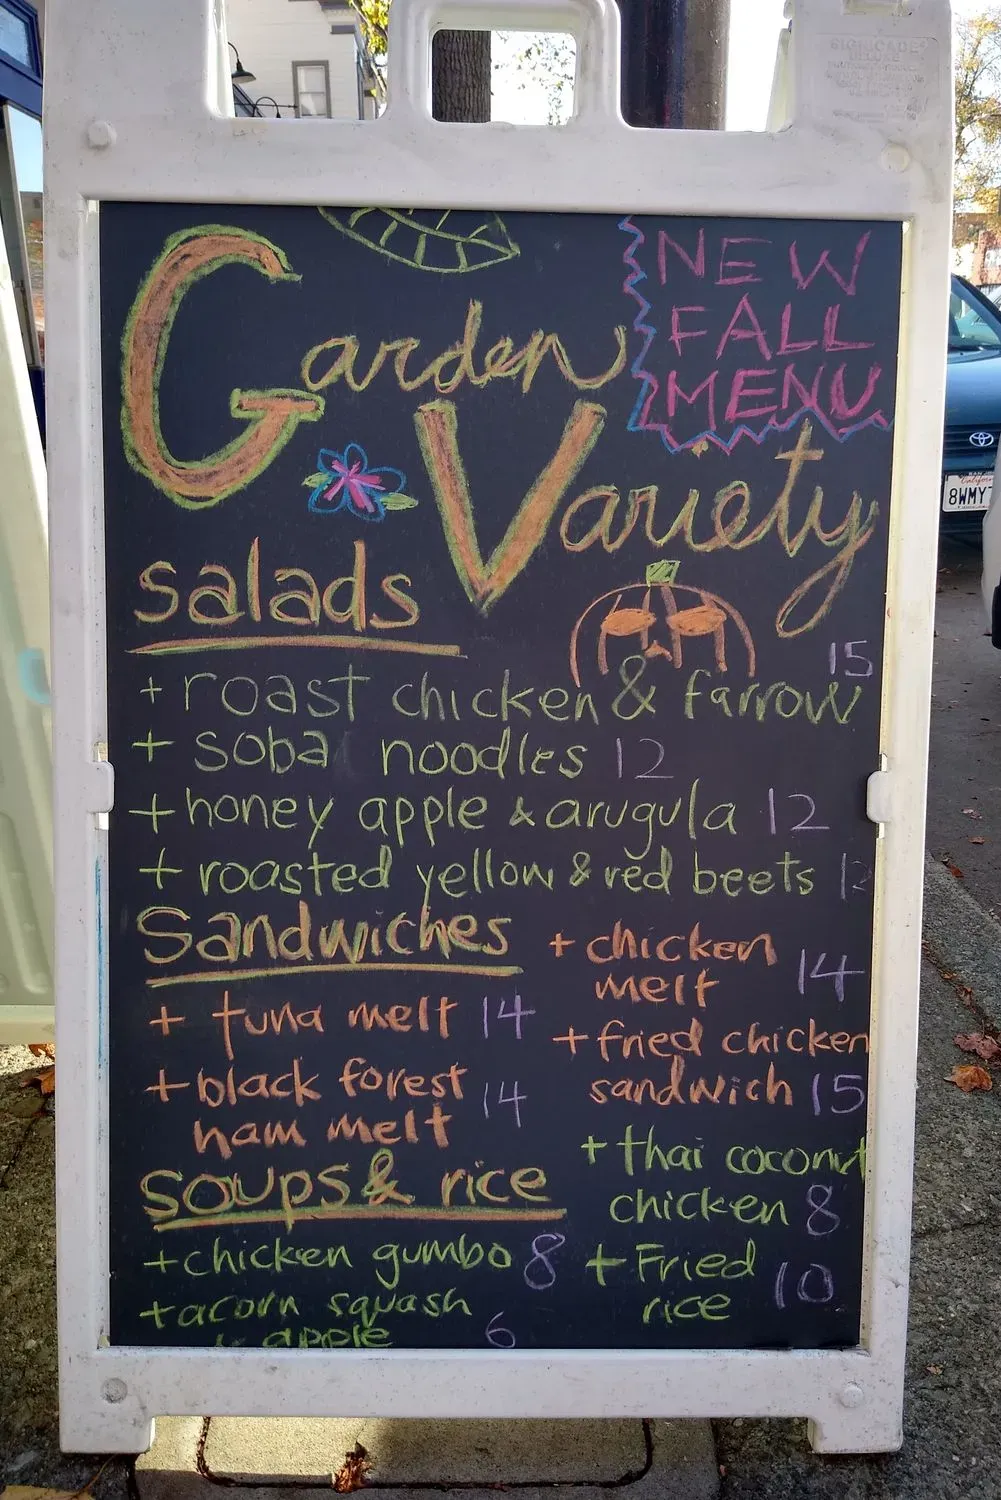 SIGNICADE
DELUXE
NEW
FALL
MENU
Garden
Variety
salads
+ roast chicken & farrow 15
+ soba noodles 12
+ honey apple & arugula 12
+ roasted yellow & red beets 12
Sandwiches
+ tuna melt 14
+ black forest
ham melt 14
+ chicken
melt 14
+ fried chicken
sandwich 15
soups & rice
+ chicken gumbo 8
+ acorn squash
apple 6
+ thai coconut
chicken 8
+ Fried
rice 10
8WMY7